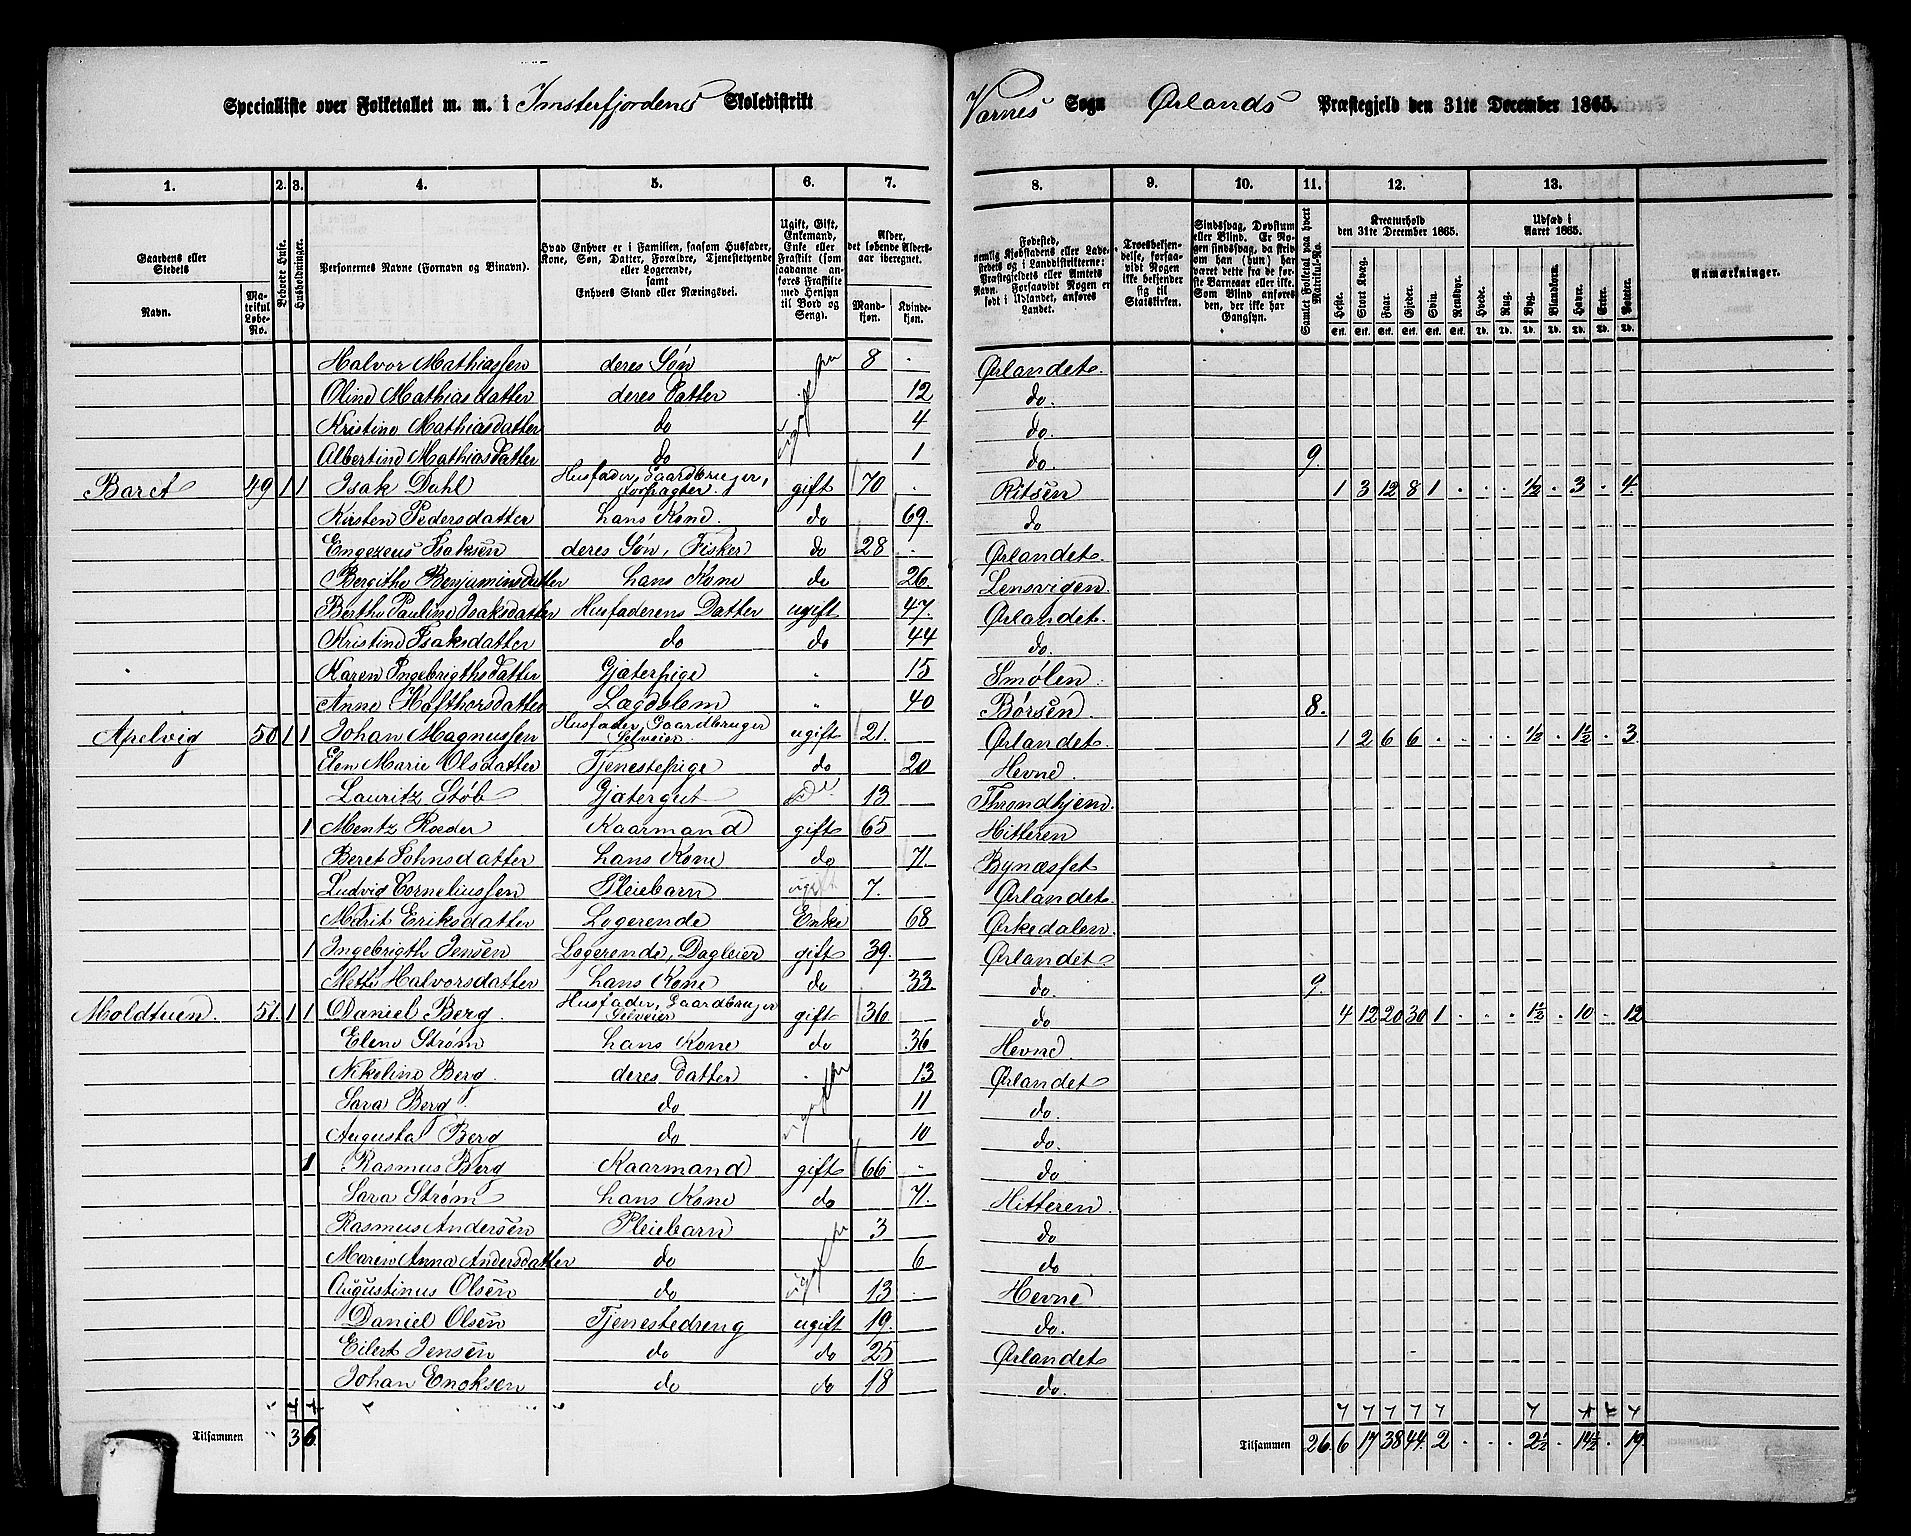 Specialliste over Folketallet m. m. i Imsterfjordens Skoledistrikt
Værnes Sogn Ørlands Præstegjeld den 31te December 1865.
1. 2. 3. 4. 5. 6. 7. 8. 9. 10. 11. 12. 13.
Gaardens eller Stedets
Navn. Matrikul Løbe-No.
Beboede Huse.
Husholdninger.
Personernes Navne (Fornavn og Binavn).
Hvad Enhver er i Familien, saasom Husfader, Kone, Søn, Datter, Forældre, Tjenestetyende eller Logerende, samt Enhvers Stand eller Næringsvei.
Ugift, Gift, Enkemand, Enke eller Fraskilt (som saadanne anføres Fraskilte med Hensyn til Bord og Seng).
Alder, det løbende Alders-aar iberegnet.
Mandkjøn. Kvindekjøn.
Fødested,
Troesbekjendelse, forsaavidt Nogen ikke bekjender sig til Statskirken.
Samlet Folketal paa hvert Matrikul-No.
Kreaturhold den 31te December 1865.
Heste. Stort Kvæg. Faar. Gjeder. Svin. Rensdyr.
Udsæd i Aaret 1865.
Hvede. Rug. Byg. Blandkorn. Havre. Erter. Poteter.
Anmærkninger.
Halvor Mathiassen deres Søn 8 Ørlandet
Oline Mathiasdatter deres Datter 12 do.
Kristine Mathiasdatter do ugift 4 do.
Albertine Mathiasdatter do 1 do 9.
Baret 49 1 1 Isak Dahl Husfader, Gaardbruger, Forpagter gift 70 Ritsen 1 3 12 8 1 . . . ½ . 3 . 4.
Kirsten Pedersdatter hans Kone. do 69. do
Engezeus Isaksen deres Søn, Fisker do 28 Ørlandet
Bergithe Benjaminsdatter hans Kone do 26 Lensvigen
Berthe Pauline Isaksdatter Husfaderens Datter ugift 47. Ørlandet.
Kristine Isaksdatter do do 44 do.
Karen Ingebrigthsdatter Gjæterpige 15 Smølen
Anne Hafthorsdatter Lægdslem 40 Børsen 8.
Apelvig 50 1 1 Johan Magnussen Husfader, Gaardbruger Selveier ugift 21. Ørlandet. 1 2 6 6 . . . . ½ . 1½ . 3
Elen Marie Olsdatter Tjenestepige do 20 Hevne.
Lauritz Støb Gjætergut do 13 Throndhjem.
1 Mentz Roeder Kaarmand gift 65 Hitteren
Beret Johnsdatter hans Kone do 71. Bynæsset
Ludvig Corneliussen Pleiebarn ugift 7. Ørlandet.
Marit Eriksdatter Logerende Enke 68 Ørkedalen
1 Ingebrigth Jensen Logerende, Dagleier gift 39. Ørlandet.
Mette Halvorsdatter hans Kone do 33. do. 9.
Moldtuen. 51. 1 1 Daniel Berg. Husfader, Gaardbruger Selveier gift 36 do 4 12 20 30 1 . . . 1½ . 10 . 12
Elene Strøm hans Kone do 36 Hevne.
Nikoline Berg. deres Datter 13 Ørlandet
Sara Berg. do ugift 11 do.
Augusta Berg do 10 do.
1 Rasmus Berg Kaarmand gift 66 do
Sara Strøm hans Kone do 71. Hitteren
Rasmus Andersen Pleiebarn 3 do
Maren Anna Andersdatter do 6 do
Augustinus Olsen do ugift 13 Hevne
Daniel Olsen Tjenestedreng ugift 19. do.
Eilert Jensen do do 25 Ørlandet
Johan Enoksen do do 18 do.
Tilsammen 3 6. Tilsammen 26. 6 17 38 44. 2 . . . 2½ . 14½ . 19.